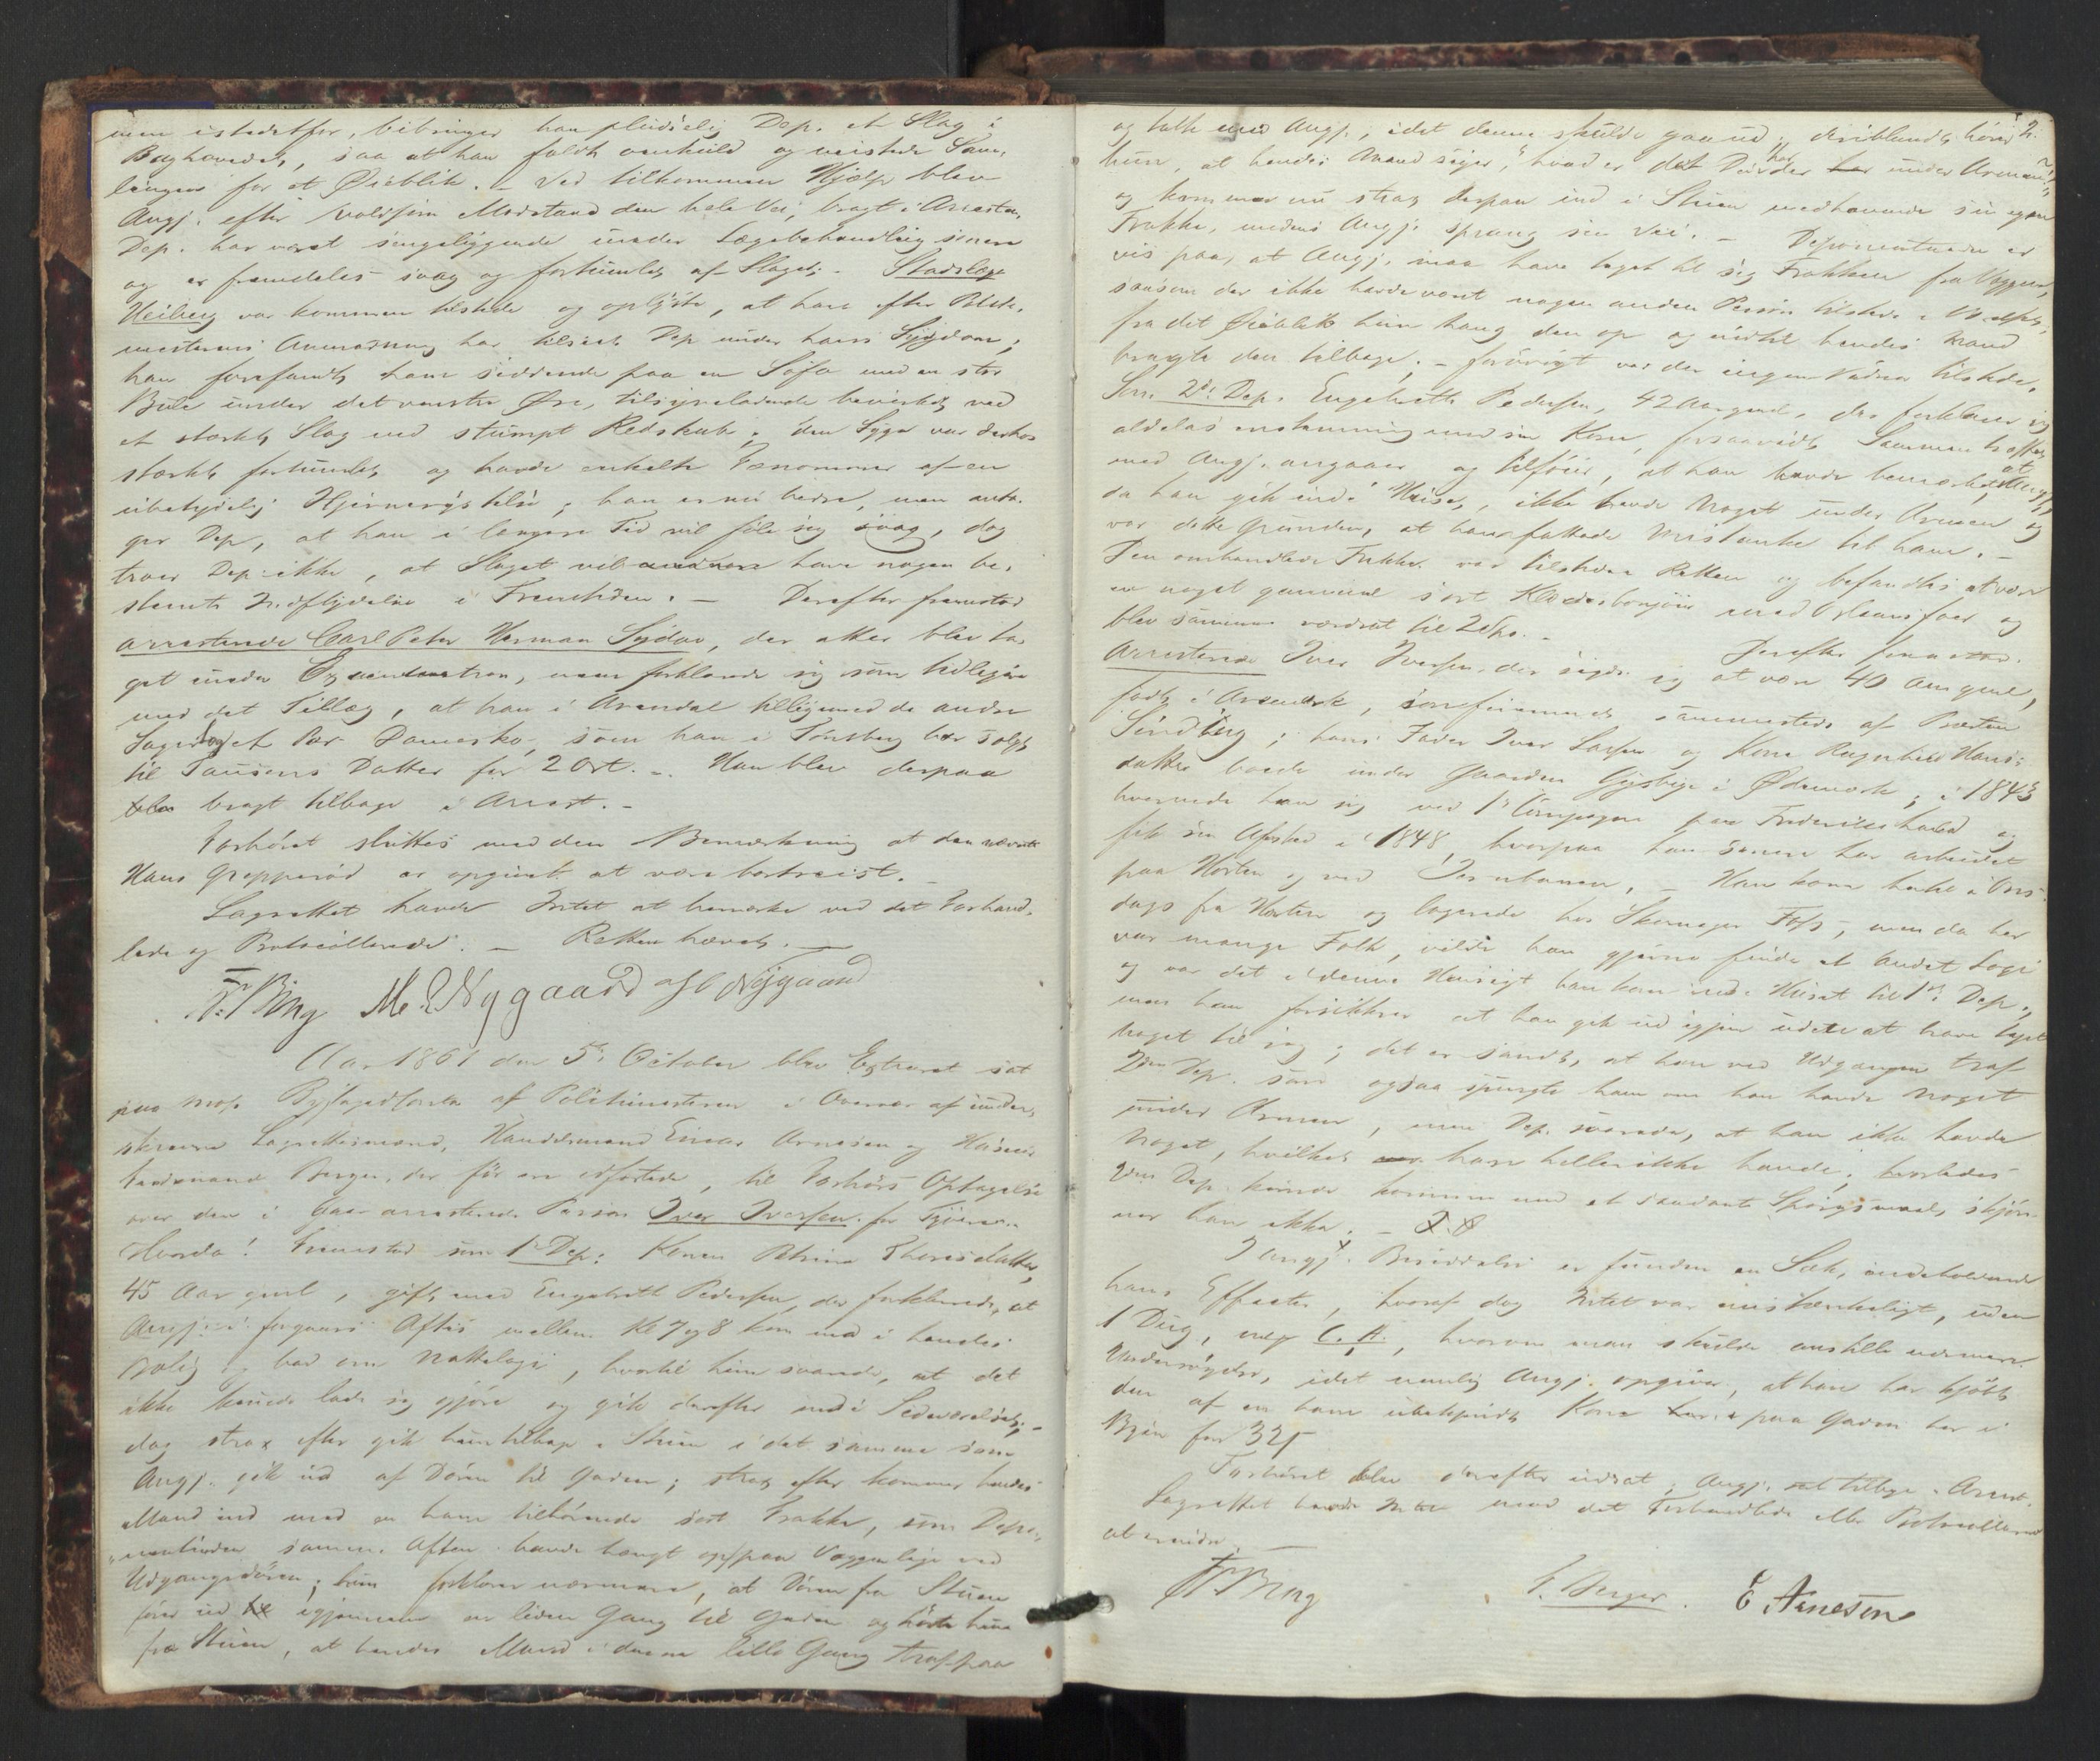 men istedetfor, bibringer han pludselig Dep. et Slag i
Baghovedet, saa at han faldt overkuld og mistede Sand-
lingen for et Øieblik. – Ved tilkommen Hjælp blev
Angj. efter voldsom Modstand den hele Vei, bragt i Arresten.
Dep. har været sengeliggende under Lægebehandling senere
og er fremdeles svag og fortumlet af Slaget. – Stadslæge
Heiberg var kommen tilstede og oplyste, at han efter Politi-
mesterens Anmodning har tilseet Dep under hans Sygdom;
han forefandt ham siddende paa en Sofa med en stor
Bule under det venstre Øre, tilsyneladende bevirket ved
et stærkt Slag med stumpt Redskab; den Syge var derhos
stærkt fortumlet og havde enkelte Fænomener af en
ubetydelig Hjernerystelse; han er nu bedre, men anta-
ger Dep, at han i længere Tid vil føle sig svag, dog
troer Dep. ikke, at Slaget vil have nogen be-
stemt Indflydelse i Fremtiden. – Derefter fremstod
arrestende Carl Peter Herman Sydow, der atter blev ta-
get under Examination, men forklarede sig som tidligere
med det Tillæg, at han i Arendal tilligemed de andre
Sager tog et Par Damesko, som han i Tønsberg har solgt
til Datter for 2 Ort. – Han blev derpaa
blev bragt tilbage i Arrest. –
Forhøret sluttes med den Bemærkning at den nævnte
Hans Grepperød er opgivet at være bortreist. –
Lagrettet havde Intet at bemærke ved det Forhand-
lede og Protocollerede. – Retten hævet. –
Fr. Bing M. Nygaard Nygaard
Aar 1861 den 5te October blev Extraret sat
paa Moss Byfogedcontor af Politimesteren i Overvær af under-
skrevne Lagrettesmænd, Handelsmand Einar Arnesen og
Berger, der før ere edfæstede, til Forhørs Optagelse
over den i Gaar arresterede Person Iver Iversen for Tyveri. –
Hvorda! Fremstod som 1ste Dep: Karen Petrine Thoresdatter,
45 Aar gml, gift med Engebreth Pedersen, der forklarede, at
Angj. i forgaars Aftes mellem Kl 7 og 8 kom ind i hendes
Bolig og bad om Nattelogi, hvortil hun svarede, at det
ikke kunde lade sig gjøre og gik derefter ind i Sideværelset; –
dog strax efter gik hun tilbage i Stuen i det samme som
Angj. gik ud af Døren til Gaden; strax efter kommer hendes
Mand ind med en ham tilhørende sort Frakke, som Depo-
nentinden samme Aften havde hængt op paa Væggen lige ved
Udgangsdøren; hun forklarer nærmere, at Døren fra Stuen
fører ud igjennem en liden Gang til Gaden og hørte hun
fra Stuen, at hendes Mand i denne lille Gang traf paa
2.
og talte med Angj., idet denne skulde gaae ud; deriblandt hører
hun, at hendes Mand siger, "hvad er det De der har under Armen?"
og kommer nu strax derpaa ind i Stuen medhavende sin egen
Frakke, medens Angj. sprang sin Vei. – Deponentinden er
vis paa, at Angj. maa have taget til sig Frakken fra Væggen,
saasom der ikke havde været nogen anden Person tilstede i Værelset,
fra det Øieblik hun hang den op og indtil hendes Mand
bragte den tilbage. – forøvrigt var der ingen Vidner tilstede.
Som 2det Dep. Engebreth Pedersen, 42 Aar gml, der forklarer sig
aldeles enstemmig med sin Kone, forsaavidt Sammentræffet
med Angj. angaaer og tilføier, at han havde bemærket, at Angj.
da han gik ind i Huset, ikke havde Noget under Armen og
var dette Grunden, at han fattede Mistanke til ham. –
Den omhandlede Frakke var tilstede i Retten og befandtes at være
en noget gammel sort Klædesbonjour med Orleansfoer og
blev samme værdsat til 2 Spd. – Derefter fremstod
Arresterede Iver Iversen, der sagde sig at være 40 Aar gml,
født i Aremark, confirmeret sammesteds af Præsten
Sindbjerg; hans Fader Iver Larsen og Kone Ragnhild Hans-
datter boede under Gaarden i Ødemark; i 1843
hvervede han sig ved 1ste Compagni paa Frederikshald og
fik sin Afsked i 1848, hvorpaa han senere har arbeidet
paa Horten og ved Jernbanen. – Han kom hertil i Ons-
dags fra Horten og logerede hos Skomager Foss, men da her
var mange Folk, vilde han gjerne finde et andet Logi
og var det i denne Hensigt han kom ind i Huset til 1ste Dep.,
men han forsikkrer at han gik ud igjen uden at have taget
noget til sig; det er sandt, at han ved Udgangen traf
2den Dep. som ogsaa spurgte ham om han havde Noget
under Armen, men Dep. svarede, at han ikke havde
Noget, hvilket han heller ikke havde; hvorledes
2den Dep. kunde komme med et saadant Spørgsmaal, skjøn-
ner han ikke. –
I Angj. Besiddelse er funden en Sæk, indeholdende
hans Effecter, hvoraf dog Intet var mistænkeligt, uden
1 Dug, mkt C. A., hvorom man skulde anstille nærmere
Undersøgelse, idet nemlig Angj. opgiver, at han har kjøbt
den af en ham ubekjendt Kone paa Gaden her i
Byen for 32 ſ
Forhøret blev derefter udsat; Angj. sat tilbage i Arrest.
Lagrettet havde Intet mod det Forhandlede eller Protocollerede
at erindre. –
Fr. Bing
F. Berger. E Arnesen